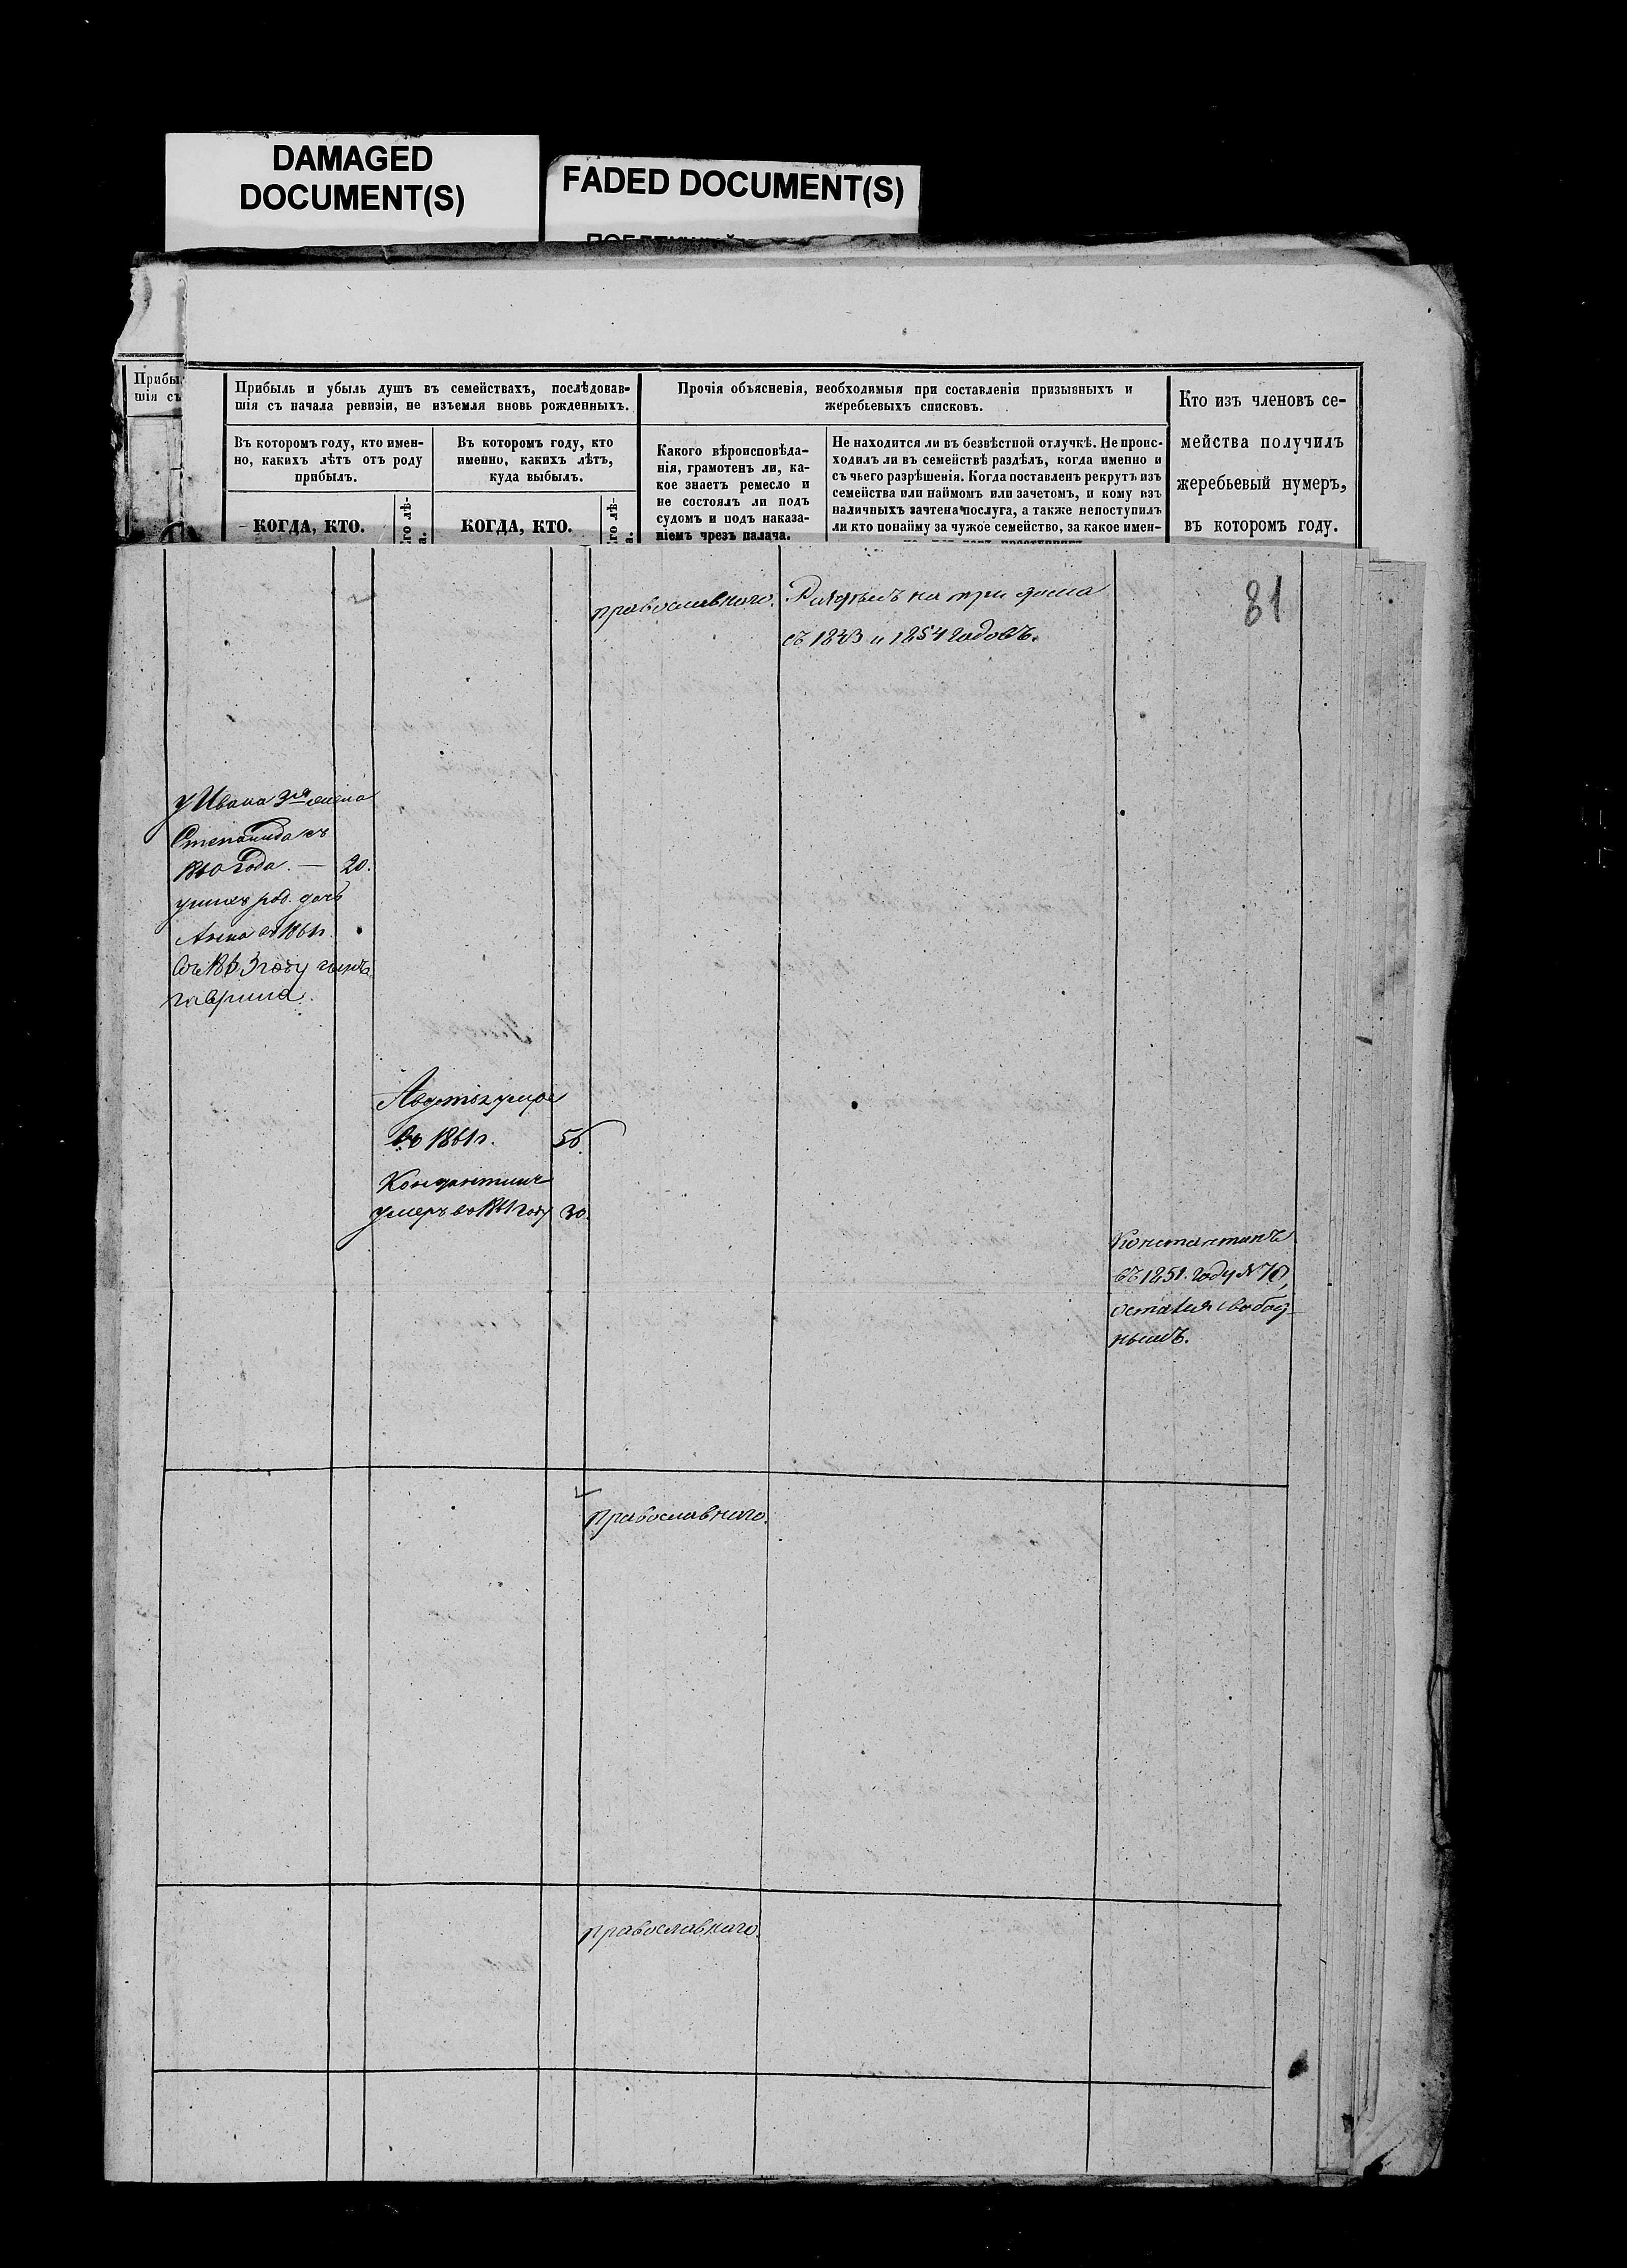 DAMAGED
DOCUMENT(S)
FADED DOCUMENT(S)
Прибы
шія съ
Прибыль и убыль душъ въ семействахъ, послѣдовав-
шія съ начала ревизіи, не изъемля вновь рожденныхъ.
Въ которомъ году, кто имен-
но, какихъ лѣтъ отъ роду
прибылъ.
КОГДА, КТО.
го лѣ-
а.
Въ которомъ году, кто
именно, какихъ лѣтъ,
куда выбылъ.
КОГДА, КТО.
го лѣ-
а.
Прочія объясненія, необходимыя при составленіи призывныхъ и
жеребьевыхъ списковъ.
Какого вѣроисповѣда-
нія, грамотенъ ли, ка-
кое знаетъ ремесло и
не состоялъ ли подъ
судомъ и подъ наказа-
ніемъ чрезъ палача.
Не находится ли въ безвѣстной отлучкѣ. Не проис-
ходилъ ли въ семействѣ раздѣлъ, когда именно и
съ чьего разрѣшенія. Когда поставленъ рекрутъ изъ
семейства или наймомъ или зачетомъ, и кому изъ
наличныхъ зачтена послуга, а также непоступилъ
ли кто понайму за чужое семейство, за какое имен-
Кто изъ членовъ се-
мейства получилъ
жеребьевый нумеръ,
въ которомъ году.
81
православнаго.
Раздѣлъ на три дома
съ 1843 и 1854 годовъ.
у Ивана 3я жена
Степанида съ
1860 года. — 20.
у них род. дочь
Анна въ 1861г.
Въ 1863 году сынъ
Гаврила.
Авдотья умер
въ 1861г. 56.
Константинъ
умеръ въ 1861 году 30.
Константинъ
въ 1851. году № 70,
остался свобод-
нымъ.
православнаго.
православнаго.